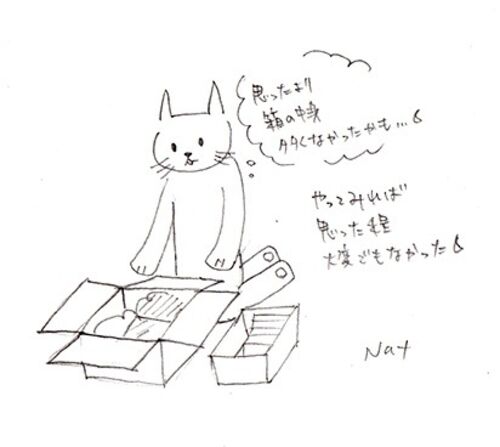 思ったより
箱の中身
多くなかったかも...。
やってみれば
思った程
大変でもなかった。
Nat